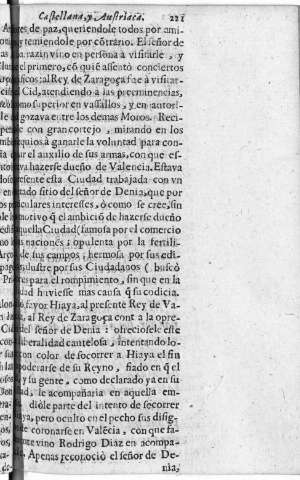 Castellana, y Austriaca. 221
de paz, queriendole todos por ami-
temiendole por cõtrario. El señor de
razin vino en persona à visitarle, y
el primero, cõ què assentò conciertos
al Rey, de Zaragoça fue à visitar-
Cid, atendiendo à las preeminencias,
superior en vassallos, y en autori-
gozava entre los demas Moros. Reci-
con gran cortejo, mirando en los
quios à ganarle la voluntad para con-
el auxilio de sus armas, con que es-
hazerse dueño de Valencia. Estava
esta Ciudad trabajada con vn
sitio del señor de Denia, que por
culares interesses, ò como se cree, sin
motivo q̃ el ambiciõ de hazerse dueño
aquella Ciudad (famosa por el comercio
naciones; opulenta por la fertili-
de sus campos; hermosa por sus edi-
ilustre por sus Ciudadanos ( buscò
para el rompimiento, sin que en la
huviesse mas causa q̃ su codicia.
favor Hiaya, al presente Rey de Va-
al Rey de Zaragoça contra la opre-
del señor de Denia: ofreciosele este
liberalidad cautelosa, intentando lo-
con color de socorrer à Hiaya el fin
poderarse de su Reyno, fiado en q̃ el
y su gente, como declarado ya en su
le acompañaria en aquella em-
diòle parte del intento de socorrer
pero oculto en el pecho sus disig-
de coronarse en Valẽcia, con que fa-
vino Rodrigo Diaz en acompa-
Apenas reconociò el señor de De-
nia,